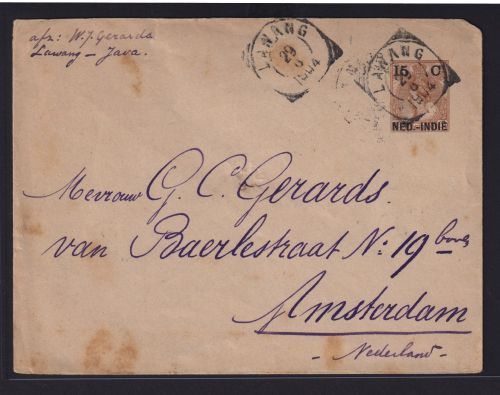 afz: W.J. Gerards
Lawang - Java.
LAWANG
29
1904
LAWANG
29
1904
15 C
NED.-INDIË
Mevrouw G. C. Gerards.
van Baerlestraat No: 19 boven
Amsterdam
- Nederland -